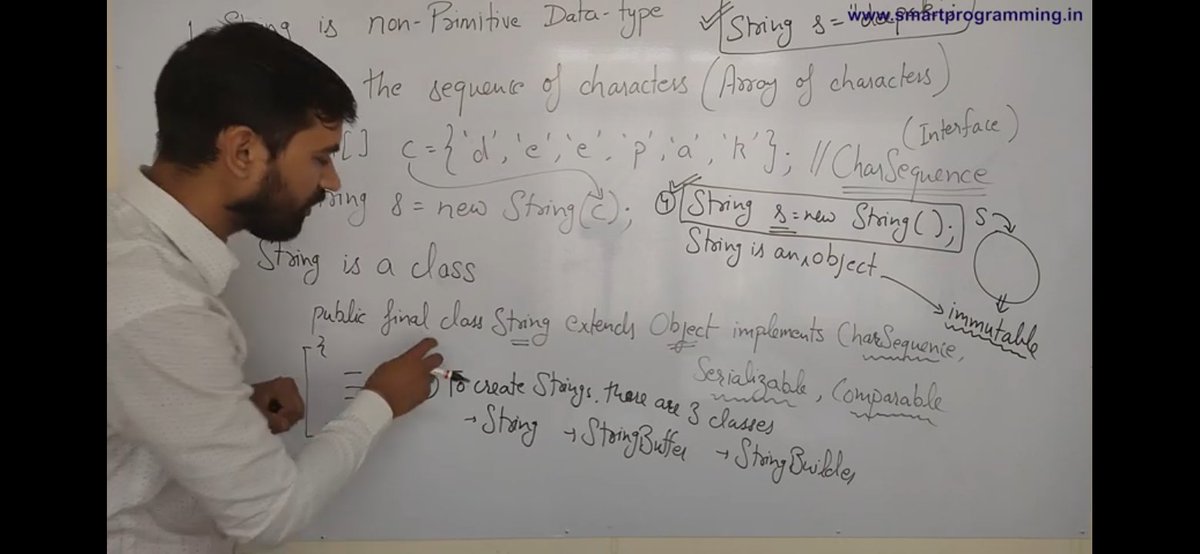 is non-Primitive Data-type
String s = "deepak"
www.smartprogramming.in
the sequence of characters (Array of characters)
[] c = {'d','e','e','p','a','k'}; // CharSequence
(Interface)
s = new String(c);
④ String s = new String();
s
String is an object
immutable
String is a class
public final class String extends Object implements CharSequence,
Serializable, Comparable
{
To create Strings, there are 3 classes
→ String → StringBuffer → StringBuilder